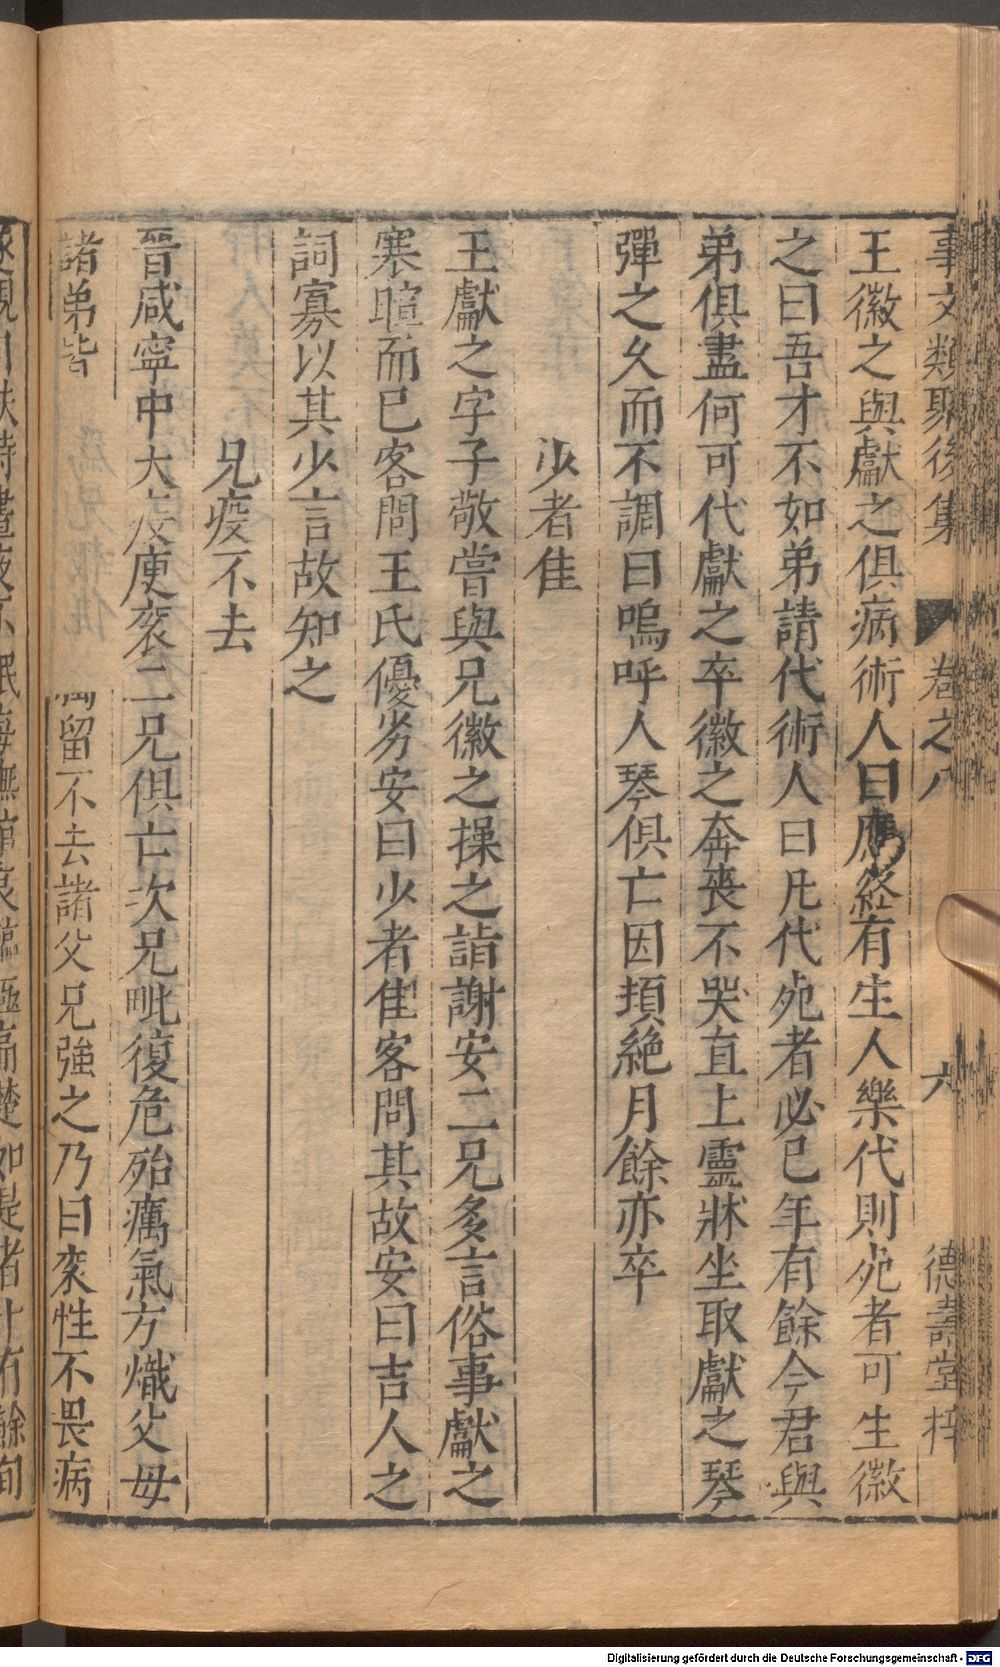 事文類聚後集 卷之八 六 德壽堂梓
王徽之與獻之俱病術人曰應終有生人樂代則死者可生徽
之曰吾才不如弟請代術人曰凡代死者必已年有餘今君與
弟俱盡何可代獻之卒徽之奔喪不哭直上靈牀坐取獻之琴
彈之久而不調曰嗚呼人琴俱亡因頓絶月餘亦卒
少者佳
王獻之字子敬嘗與兄徽之操之詣謝安二兄多言俗事獻之
寒暄而已客問王氏優劣安曰少者佳客問其故安曰吉人之
詞寡以其少言故知之
兄疫不去
晉咸寧中大疫庾袞二兄俱亡次兄毗復危殆癘氣方熾父母
諸弟皆 留不去諸父兄強之乃曰袞性不畏病
親自扶持晝夜不眠 撫 哀臨 如是者十有餘旬
Digitalisierung gefördert durch die Deutsche Forschungsgemeinschaft - DFG